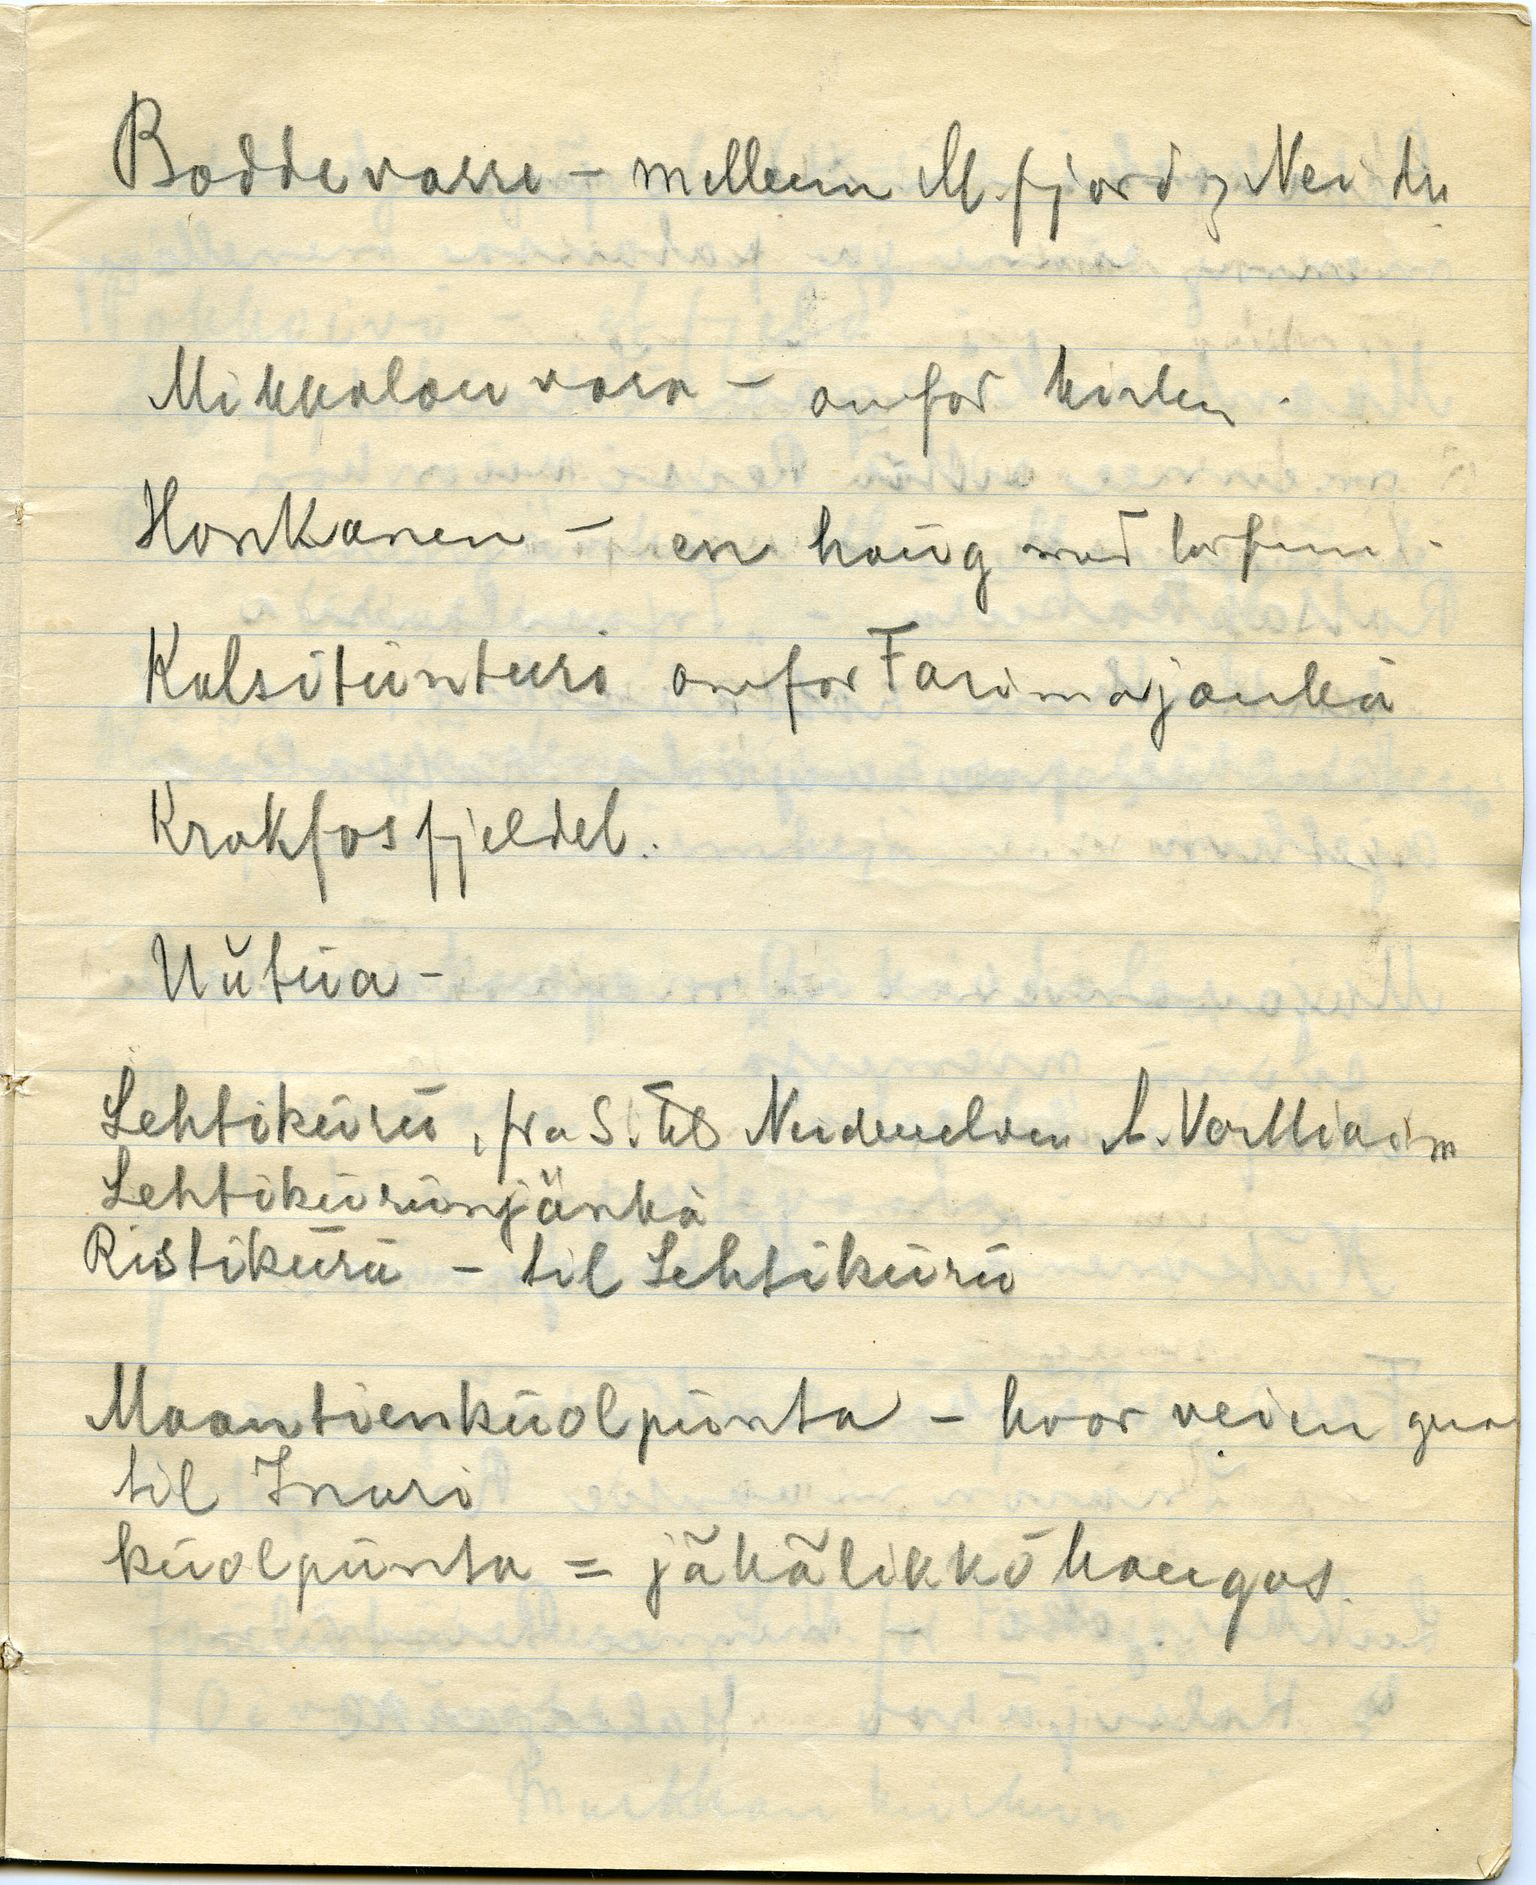 Boddevarre – mellem M. fjord og Neiden
Mikkolanvara – ovnfor kirken.
Honkanen – en haug med torfuru.
Kalsitunturi ovnfor Farimajänkä
Krokfosfjeldet.
Uutua –
Lehtikuru, fra S. til Neidenelven
Lehtikurunjänkä
Ristikuru – til Lehtikuru
Maantienkuolpunta – hvor veien gaar
til Inari
kuolpunta = jäkälikkökangas.